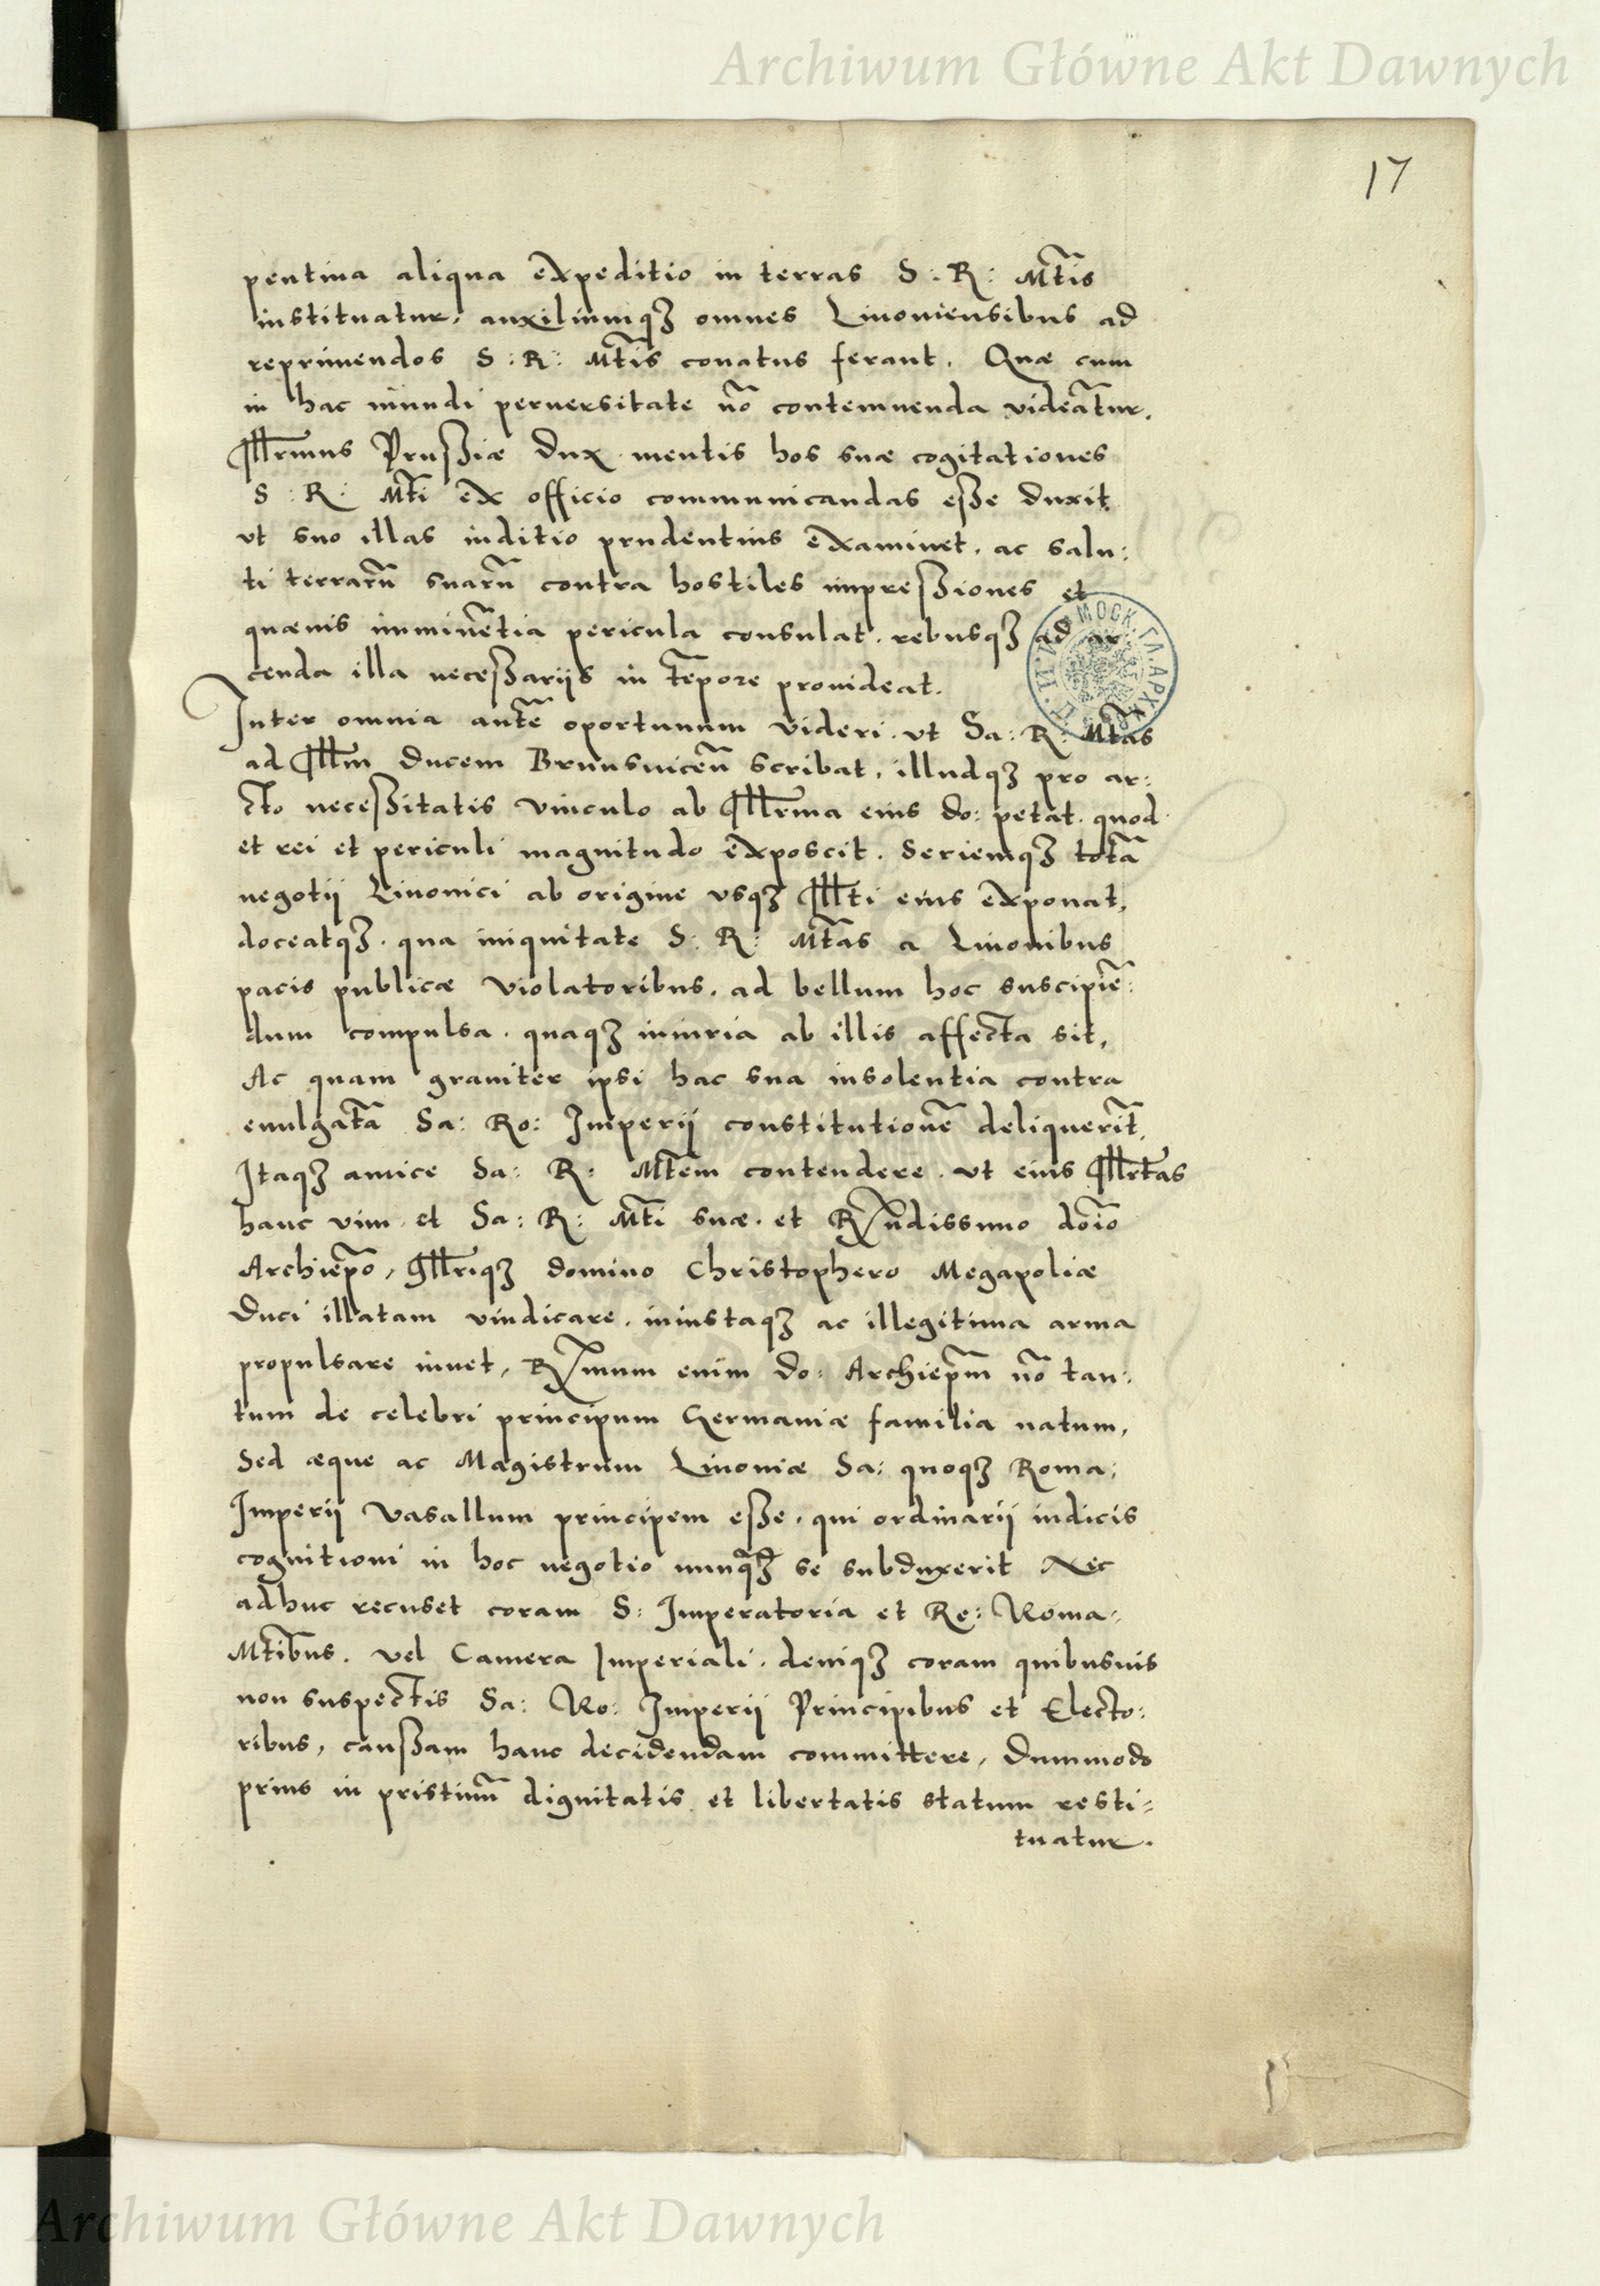 Archiwum Główne Akt Dawnych
17
pentina aliqua expeditio in terras S: R: Mtis
instituatur, auxiliumqꝫ omnes Liuoniensibus ad
reprimendos S: R: Mtis conatus ferant. Quæ cum
in hac mundi peruersitate nõ contemnenda videãtur.
Illrmus Prußiæ Dux mentis hos suæ cogitationes
S: R: Mti ex officio communicandas eße duxit,
vt suo illas iuditio prudentius examinet, ac salu:
ti terrarũ suarũ contra hostiles impreßiones et
quæuis imminẽtia pericula consulat, rebusqꝫ ad ar
cenda illa neceßarijs in tẽpore prouideat.
Inter omnia autẽ oportunum videri, vt Sa: R: Mtas
ad Illm Ducem Brunsuicen̄ scribat, illudqꝫ pro ar:
cto neceßitatis vinculo ab Illrma eius do: petat, quod
et rei et periculi magnitudo exposcit. Seriemqꝫ totã
negotij Liuonici ab origine vsqꝫ Illti eius exponat,
doceatqꝫ, qua iniquitate S: R: Mtas a Liuonibus
pacis publicæ violatoribus, ad bellum hoc suscipiẽ:
dum compulsa, quaqꝫ iniuria ab illis affecta sit,
Ac quam grauiter ipsi hac sua insolentia contra
euulgatã Sa: Ro: Imperij constitutionẽ deliquerĩt,
Itaqꝫ amice Sa: R: Mtem contendere, vt eius Illrtas
hanc vim, et Sa: R: Mti suæ, et Rx̃ndissimo dõio
Archiepõ, Illriqꝫ domino Christophero Megapoliæ
Duci illatam vindicare, iniustaqꝫ ac illegitima arma
propulsare iuuet, Rx̃mum enim do: Archiepm̃ nõ tan:
tum de celebri principum Germaniæ familia natum,
Sed æque ac Magistrum Liuoniæ Sa: quoqꝫ Roma:
Imperij Vasallum principem eße, qui ordinarij iudicis
cognitioni in hoc negotio nunqꝫ se subduxerit Nec
adhuc recuset coram S: Imperatoria et Re: Roma:
Mtibus, vel Camera Imperiali, deniqꝫ coram quibusuis
non suspectis Sa: Ro: Imperij Principibus et Electo:
ribus, caußam hanc decidendam committere, Dummodo
prius in pristinũ dignitatis et libertatis statum resti=
tuatur.
Archiwum Główne Akt Dawnych